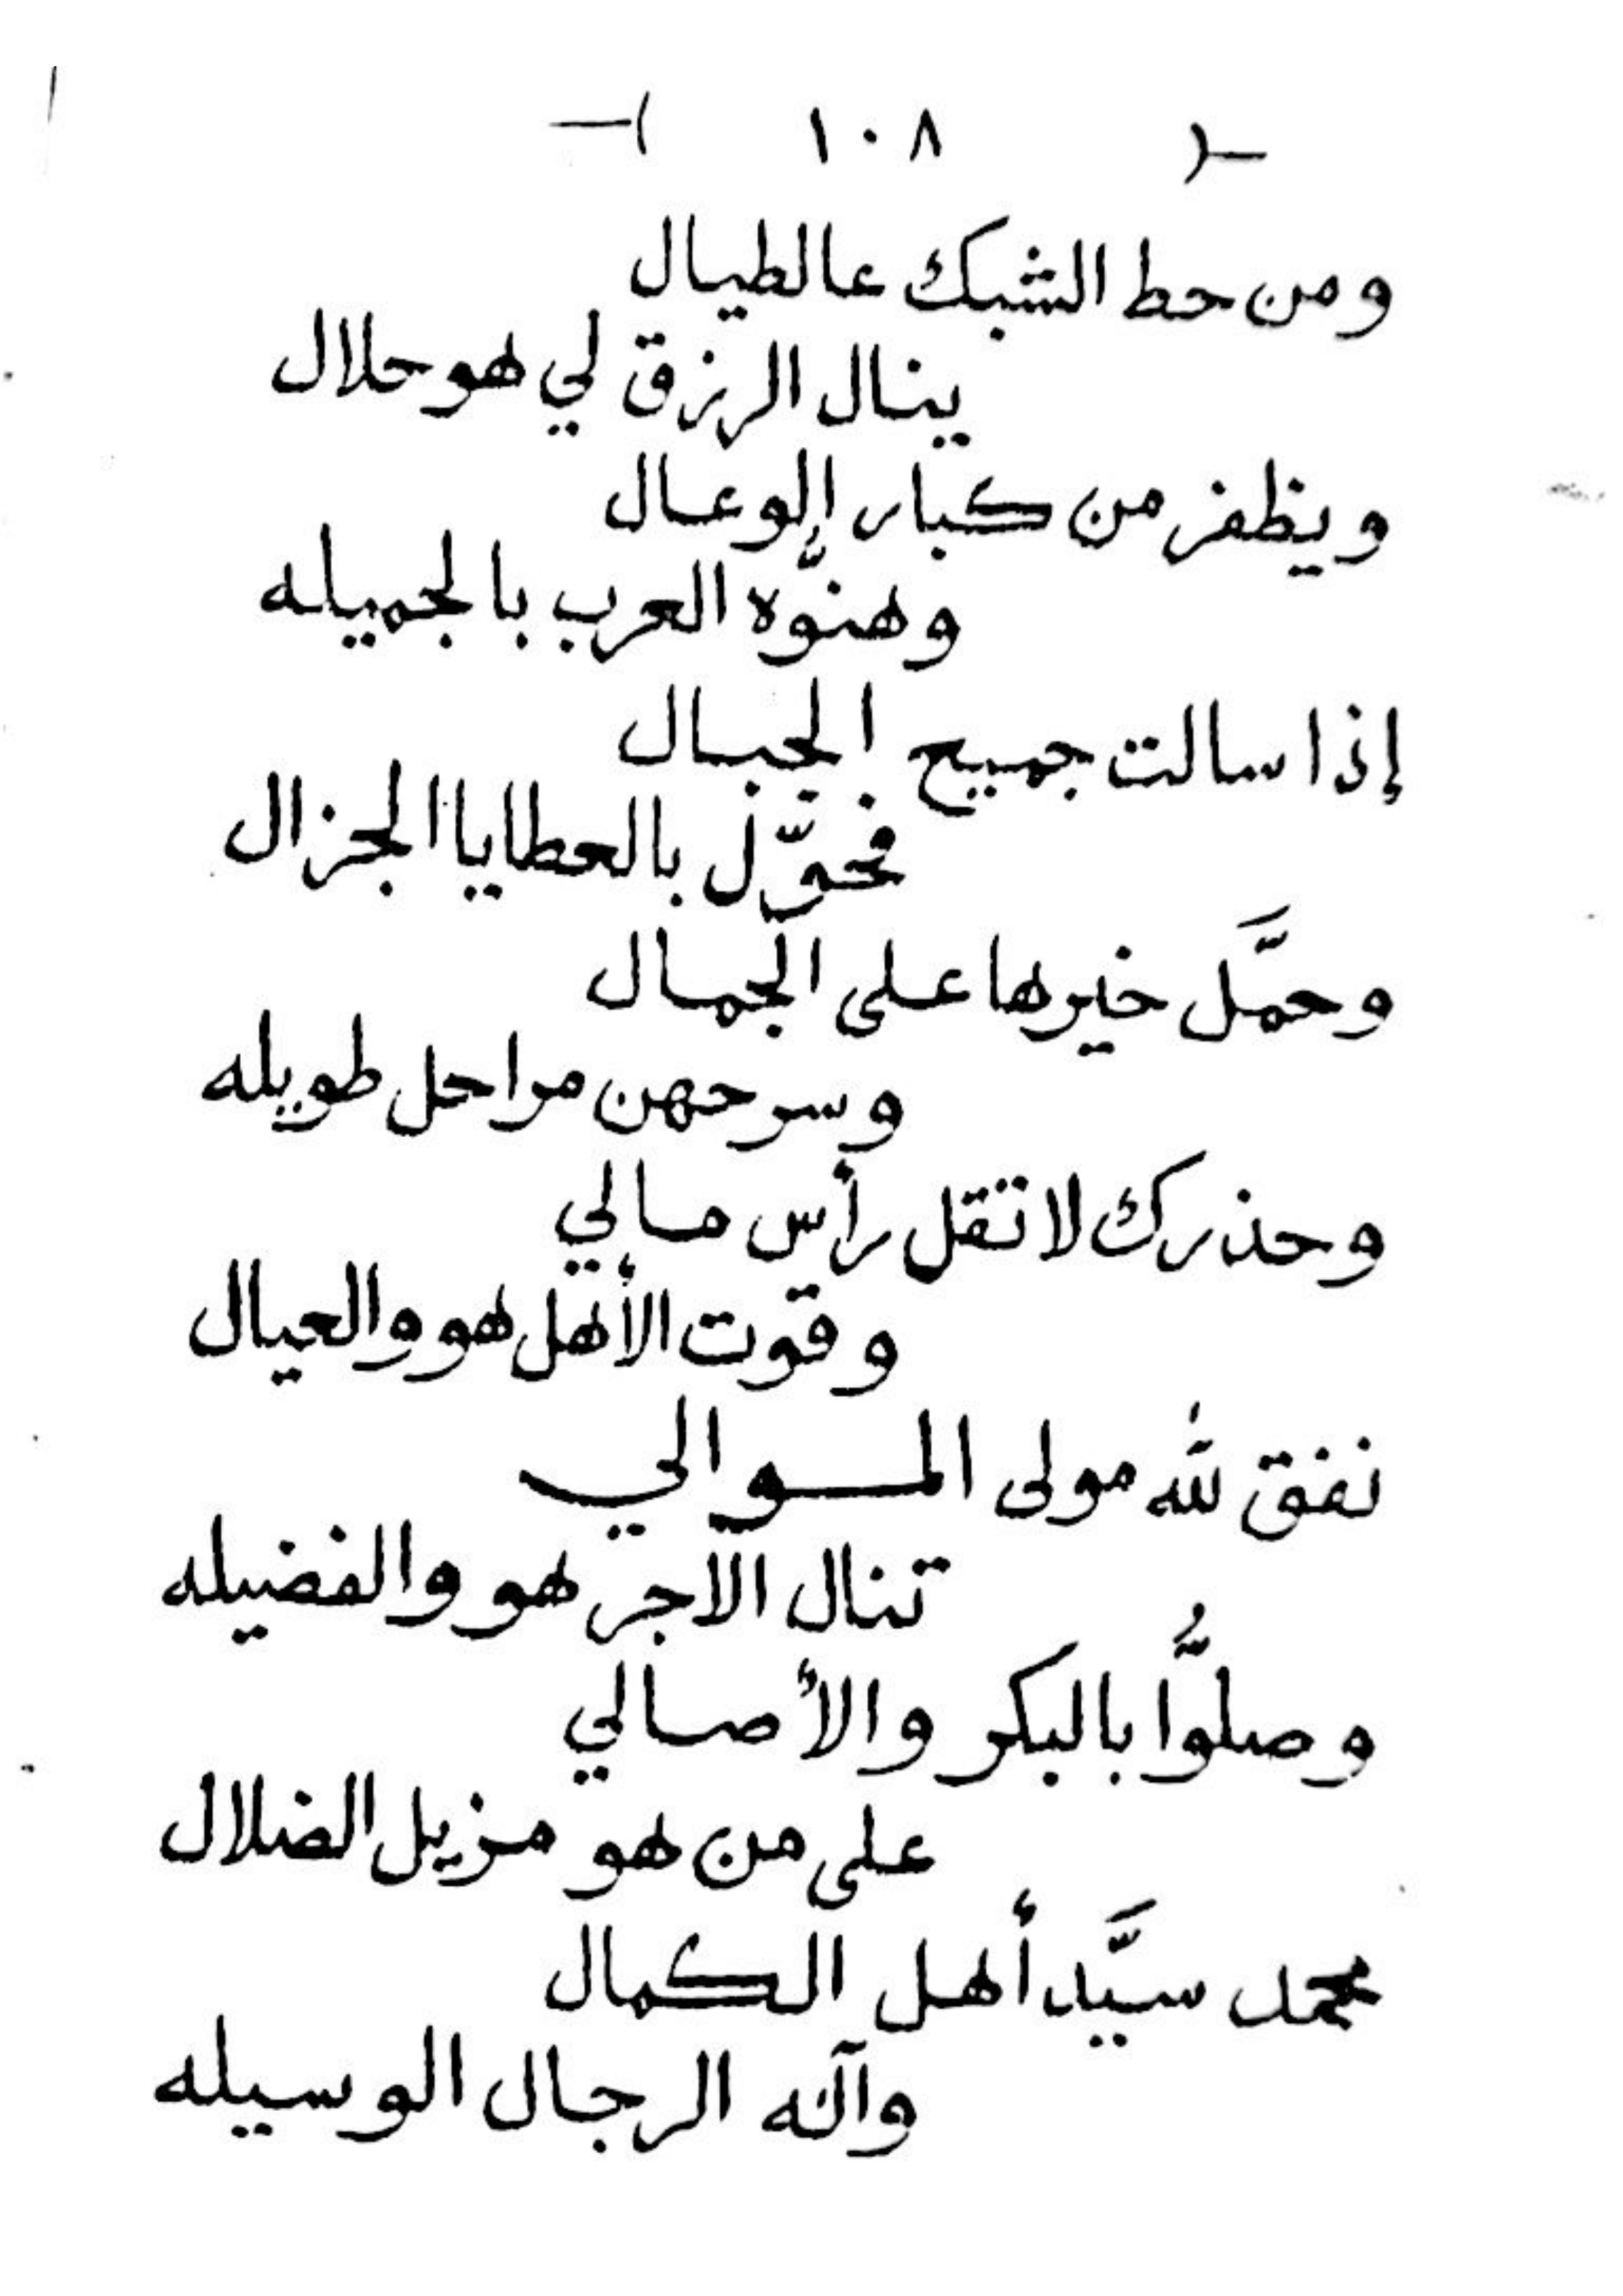 -( ١٠٨ )-
ومن حط الشبك عالطيال
ينال الرزق لي هو حلال
ويظفر من كبار الوعال
وهنّوه العرب بالجميله
إذا سالت جميع الجبال
فحوّل بالعطايا الجزال
وحمَّل خيرها على الجمال
وسرحهن مراحل طويله
وحذرك لا تقل رأس مالي
وقوت الأهل هو والعيال
نفق لله مولى المـوالي
تنال الاجر هو والفضيله
وصلُّوا بالبكر والأصالي
على من هو مزيل الضلال
محمد سيَّد أهل الكمال
وآله الرجال الوسيله